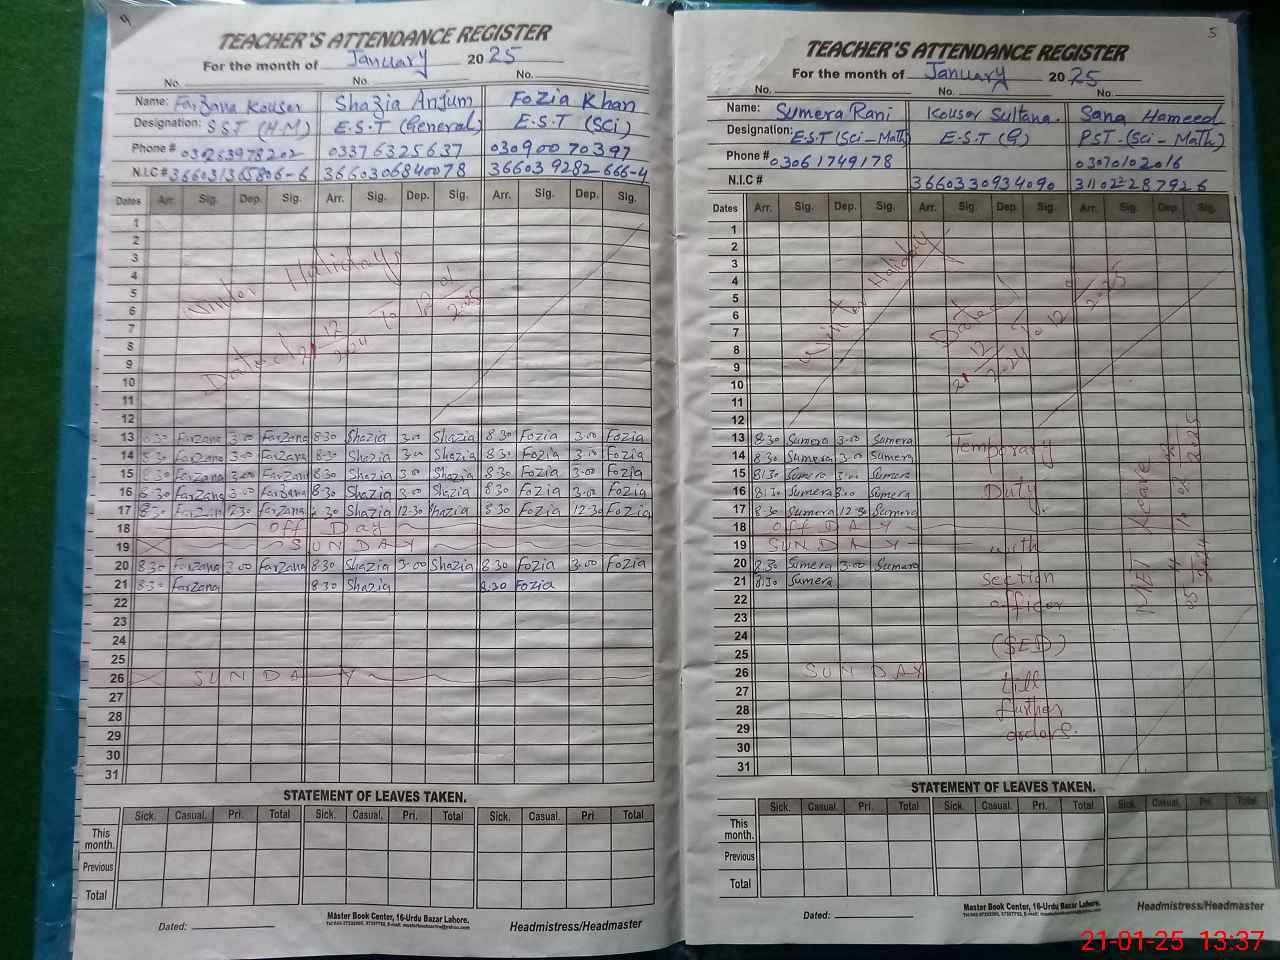 4
TEACHER'S ATTENDANCE REGISTER
For the month of January 2025
No. No. No.
Name: Farzana Kouser Shazia Anjum Fozia Khan
Designation: S.S.T (H.M) E.S.T (General) E.S.T (Sci)
Phone # 03263978202 03376325637 03090070397
N.I.C # 3660306840078 366039282666-4
Dates Arr. Sig. Dep. Sig. Arr. Sig. Dep. Sig. Arr. Sig. Dep. Sig.
1
2
3
4
5
6
7
8
9
10
11
12
Winter Holidays
Dated 21 12 2024 To 12 01 2025
13 8:30 Farzana 3:00 Farzana 8:30 Shazia 3:00 Shazia 8:30 Fozia 3:00 Fozia
14 8:30 Farzana 3:00 Farzana 8:30 Shazia 3:00 Shazia 8:30 Fozia 3:00 Fozia
15 8:30 Farzana 3:00 Farzana 8:30 Shazia 3:00 Shazia 8:30 Fozia 3:00 Fozia
16 8:30 Farzana 3:00 Farzana 8:30 Shazia 3:00 Shazia 8:30 Fozia 3:00 Fozia
17 8:30 Farzana 12:30 Farzana 8:30 Shazia 12:30 Shazia 8:30 Fozia 12:30 Fozia
18 Off Day
19 SUNDAY
20 8:30 Farzana 3:00 Farzana 8:30 Shazia 3:00 Shazia 8:30 Fozia 3:00 Fozia
21 8:30 Farzana 8:30 Shazia 8:30 Fozia
22
23
24
25
26 SUNDAY
27
28
29
30
31
STATEMENT OF LEAVES TAKEN.
Sick. Casual. Pri. Total Sick. Casual. Pri. Total Sick. Casual. Pri. Total
This month.
Previous
Total
Dated:
Master Book Center, 16-Urdu Bazar Lahore.
Headmistress/Headmaster
5
TEACHER'S ATTENDANCE REGISTER
For the month of January 2025
No. No. No.
Name: Sumera Rani Kouser Sultana. Sana Hameed
Designation: E.S.T (Sci-Math) E.S.T (G) PST.(Sci-Math)
Phone # 03061749178 03070102016
N.I.C # 3660330934090
Dates Arr. Sig. Dep. Sig. Arr. Sig. Dep. Sig. Arr. Sig. Dep. Sig.
1
2
3
4
5
6
7
8
9
10
11
12
Winter Holiday
Dated 21 12 2024 To 12
2025
13 8:30 Sumera 3:00 Sumera
14 8:30 Sumera 3:00 Sumera
15 8:30 Sumera 3:00 Sumera
16 8:30 Sumera 3:00 Sumera
17 8:30 Sumera 12:30 Sumera
18 Off DAY
19 SUNDAY
20 8:30 Sumera 3:00 Sumera
21 8:30 Sumera
22
23
24
25
26 SUNDAY
27
28
29
30
31
Temporary
Duty
with
section
officer
(SED)
till
further
orders.
STATEMENT OF LEAVES TAKEN.
Sick. Casual. Pri. Total Sick. Casual. Pri. Total Sick. Casual. Pri. Total
This month.
Previous
Total
Dated:
Master Book Center, 16-Urdu Bazar Lahore.
Headmistress/Headmaster
21-01-25 13:37